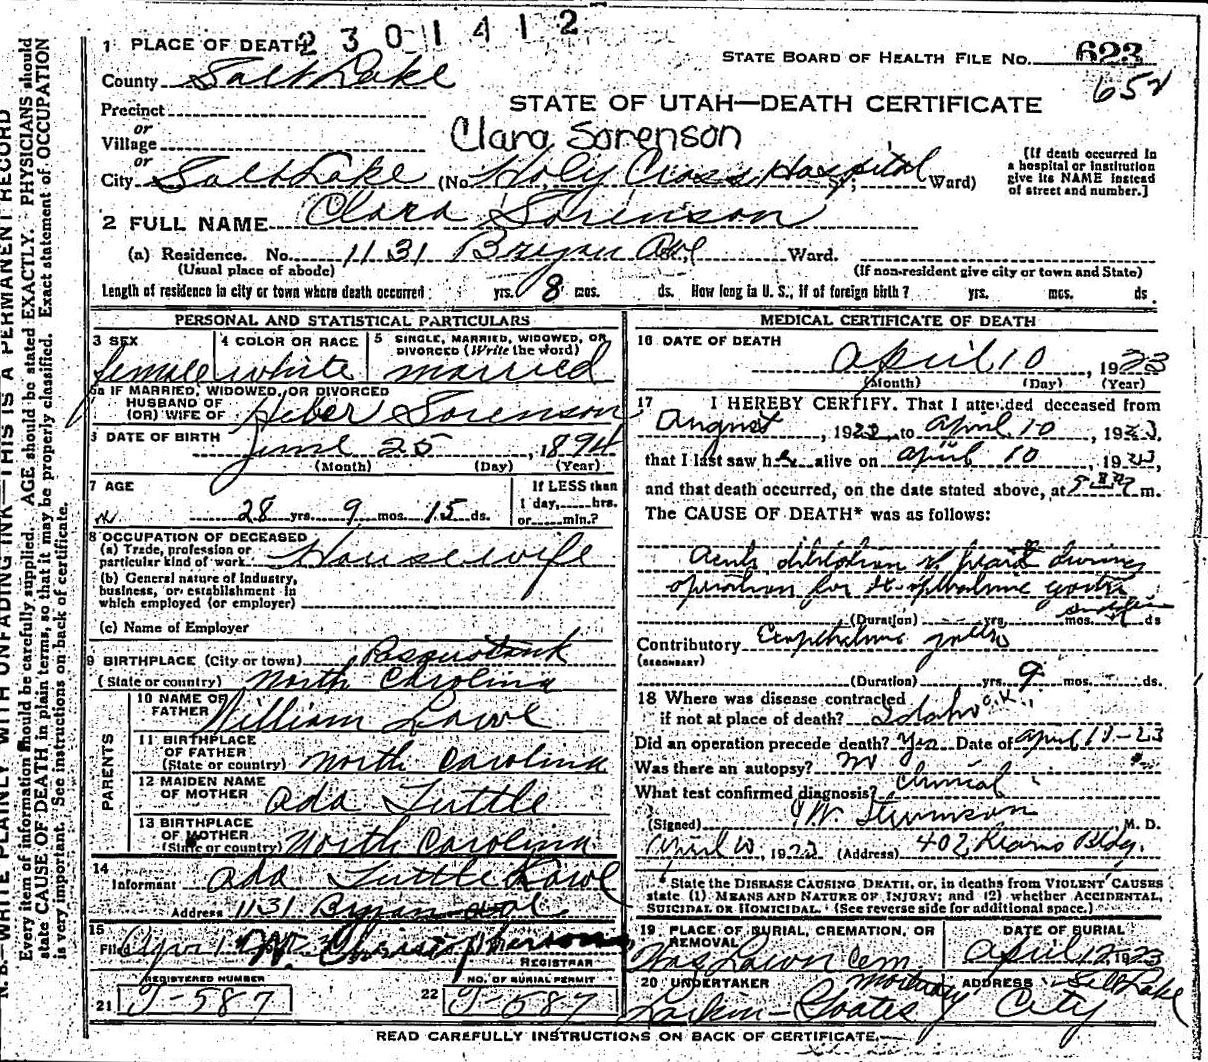 2301412
1 PLACE OF DEATH
STATE BOARD OF HEALTH FILE NO. 623
652
County Salt Lake
STATE OF UTAH—DEATH CERTIFICATE
Precinct
or
Village
Clara Sorenson
or
City Salt Lake (No. Holy Cross Hospital St.; Ward)
[If death occurred in a hospital or institution give its NAME instead of street and number.]
2 FULL NAME Clara Sorenson
(a) Residence. No. 1131 Bryan Ave Ward.
(Usual place of abode)
(If non-resident give city or town and State)
Length of residence in city or town where death occurred yrs. 8 mos. ds. How long in U. S., if of foreign birth? yrs. mos. ds.
PERSONAL AND STATISTICAL PARTICULARS
3 SEX female
4 COLOR OR RACE white
5 SINGLE, MARRIED, WIDOWED, OR DIVORCED (Write the word) married
5a IF MARRIED, WIDOWED, OR DIVORCED
HUSBAND OF
(OR) WIFE OF Heber Sorenson
6 DATE OF BIRTH June 25, 1894
(Month) (Day) (Year)
7 AGE 28 yrs. 9 mos. 15 ds.
If LESS than 1 day, hrs. or min.?
8 OCCUPATION OF DECEASED
(a) Trade, profession or particular kind of work Housewife
(b) General nature of industry, business, or establishment in which employed (or employer)
(c) Name of Employer
9 BIRTHPLACE (City or town) Pasquotank
(State or country) North Carolina
PARENTS
10 NAME OF FATHER William Lowe
11 BIRTHPLACE OF FATHER (State or country) North Carolina
12 MAIDEN NAME OF MOTHER Ada Tuttle
13 BIRTHPLACE OF MOTHER (State or country) North Carolina
14 Informant Ada Tuttle Lowe
Address 1131 Bryan Ave
15 Filed Apr
REGISTRAR
REGISTERED NUMBER
21 T-587
NO. OF BURIAL PERMIT
22 T-587
MEDICAL CERTIFICATE OF DEATH
16 DATE OF DEATH
April 10, 1923
(Month) (Day) (Year)
17 I HEREBY CERTIFY, That I attended deceased from
August, 1922, to April 10, 1923,
that I last saw her alive on April 10, 1923,
and that death occurred, on the date stated above, at m.
The CAUSE OF DEATH* was as follows:
Acute dilitation of heart during
operation for Exophthalmic goitre
(Duration) yrs. mos. ds
Contributory Exophthalmic goitre
(SECONDARY)
(Duration) yrs. 9 mos. ds.
18 Where was disease contracted
if not at place of death? Idaho O.K.
Did an operation precede death? Yes Date of April 10-23
Was there an autopsy? no
What test confirmed diagnosis? Clinical
(Signed) M. D.
April 10, 1923 (Address) 402 Kearns Bldg.
* State the DISEASE CAUSING DEATH, or, in deaths from VIOLENT CAUSES state (1) MEANS AND NATURE OF INJURY; and (2) whether ACCIDENTAL, SUICIDAL OR HOMICIDAL. (See reverse side for additional space.)
19 PLACE OF BURIAL, CREMATION, OR REMOVAL
Was Lawn Cem
DATE OF BURIAL
April 12, 1923
20 UNDERTAKER
Mortuary
ADDRESS Salt Lake
City
READ CAREFULLY INSTRUCTIONS ON BACK OF CERTIFICATE.
N. B.—WRITE PLAINLY WITH UNFADING INK—THIS IS A PERMANENT RECORD
Every item of information should be carefully supplied. AGE should be stated EXACTLY. PHYSICIANS should
state CAUSE OF DEATH in plain terms, so that it may be properly classified. Exact statement of OCCUPATION
is very important. See instructions on back of certificate.